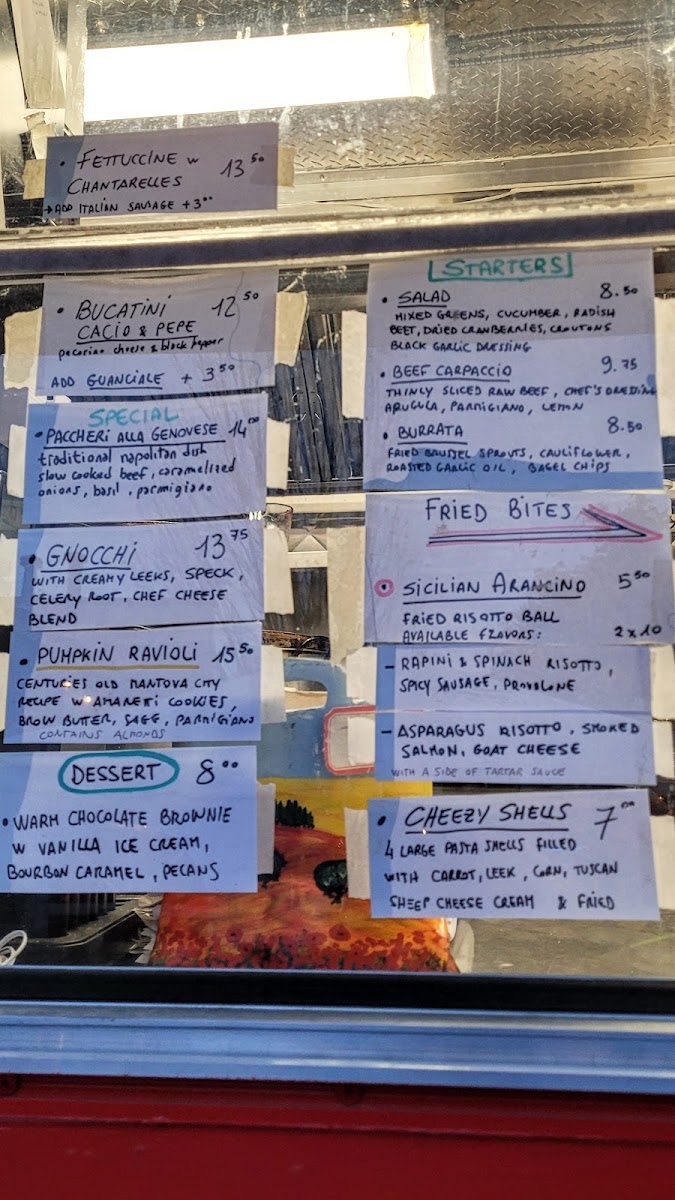 • FETTUCCINE W 13 50
CHANTARELLES
→ ADD ITALIAN SAUSAGE + 3 00
• BUCATINI 12 50
CACIO & PEPE
pecorino cheese & black pepper
ADD GUANCIALE + 3 50
SPECIAL
• PACCHERI ALLA GENOVESE 14 00
traditional napolitan dish
slow cooked beef, caramelized
onions, basil, parmigiano
• GNOCCHI 13 75
WITH CREAMY LEEKS, SPECK,
CELERY ROOT, CHEF CHEESE
BLEND
• PUMPKIN RAVIOLI 15 50
CENTURIES OLD MANTOVA CITY
RECIPE W AMARETI COOKIES,
BROW BUTER, SAGE, PARMIGIANO
CONTAINS ALMONDS
DESSERT 8 00
• WARM CHOCOLATE BROWNIE
W VANILLA ICE CREAM,
BOURBON CARAMEL, PECANS
STARTERS
• SALAD 8.50
MIXED GREENS, CUCUMBER, RADISH
BEET, DRIED CRANBERRIES, CROUTONS
BLACK GARLIC DRESSING
• BEEF CARPACCIO 9.75
THINLY SLICED RAW BEEF, CHEF'S DRESSING
ARUGULA, PARMIGIANO, LEMON
• BURRATA 8.50
FRIED BRUSSEL SPROUTS, CAULIFLOWER,
ROASTED GARLIC OIL, BAGEL CHIPS
FRIED BITES
SICILIAN ARANCINO 5 50
FRIED RISOTTO BALL
AVAILABLE FLAVORS: 2 x 10
- RAPINI & SPINACH RISOTTO,
SPICY SAUSAGE, PROVOLONE
- ASPARAGUS RISOTTO, SMOKED
SALMON, GOAT CHEESE
WITH A SIDE OF TARTAR SAUCE
• CHEEZY SHELLS 7 00
4 LARGE PASTA SHELLS FILLED
WITH CARROT, LEEK, CORN, TUSCAN
SHEEP CHEESE CREAM & FRIED